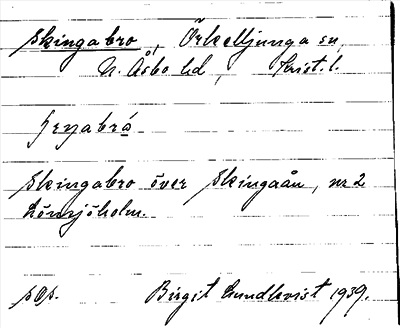 Skingabro, Örkelljunga sn,
N. Åsbo hd, Krist. l.
Skingabro över Skingaån, nr 2
Lönnjöholm.
pop. Birgit Lundkvist 1939.